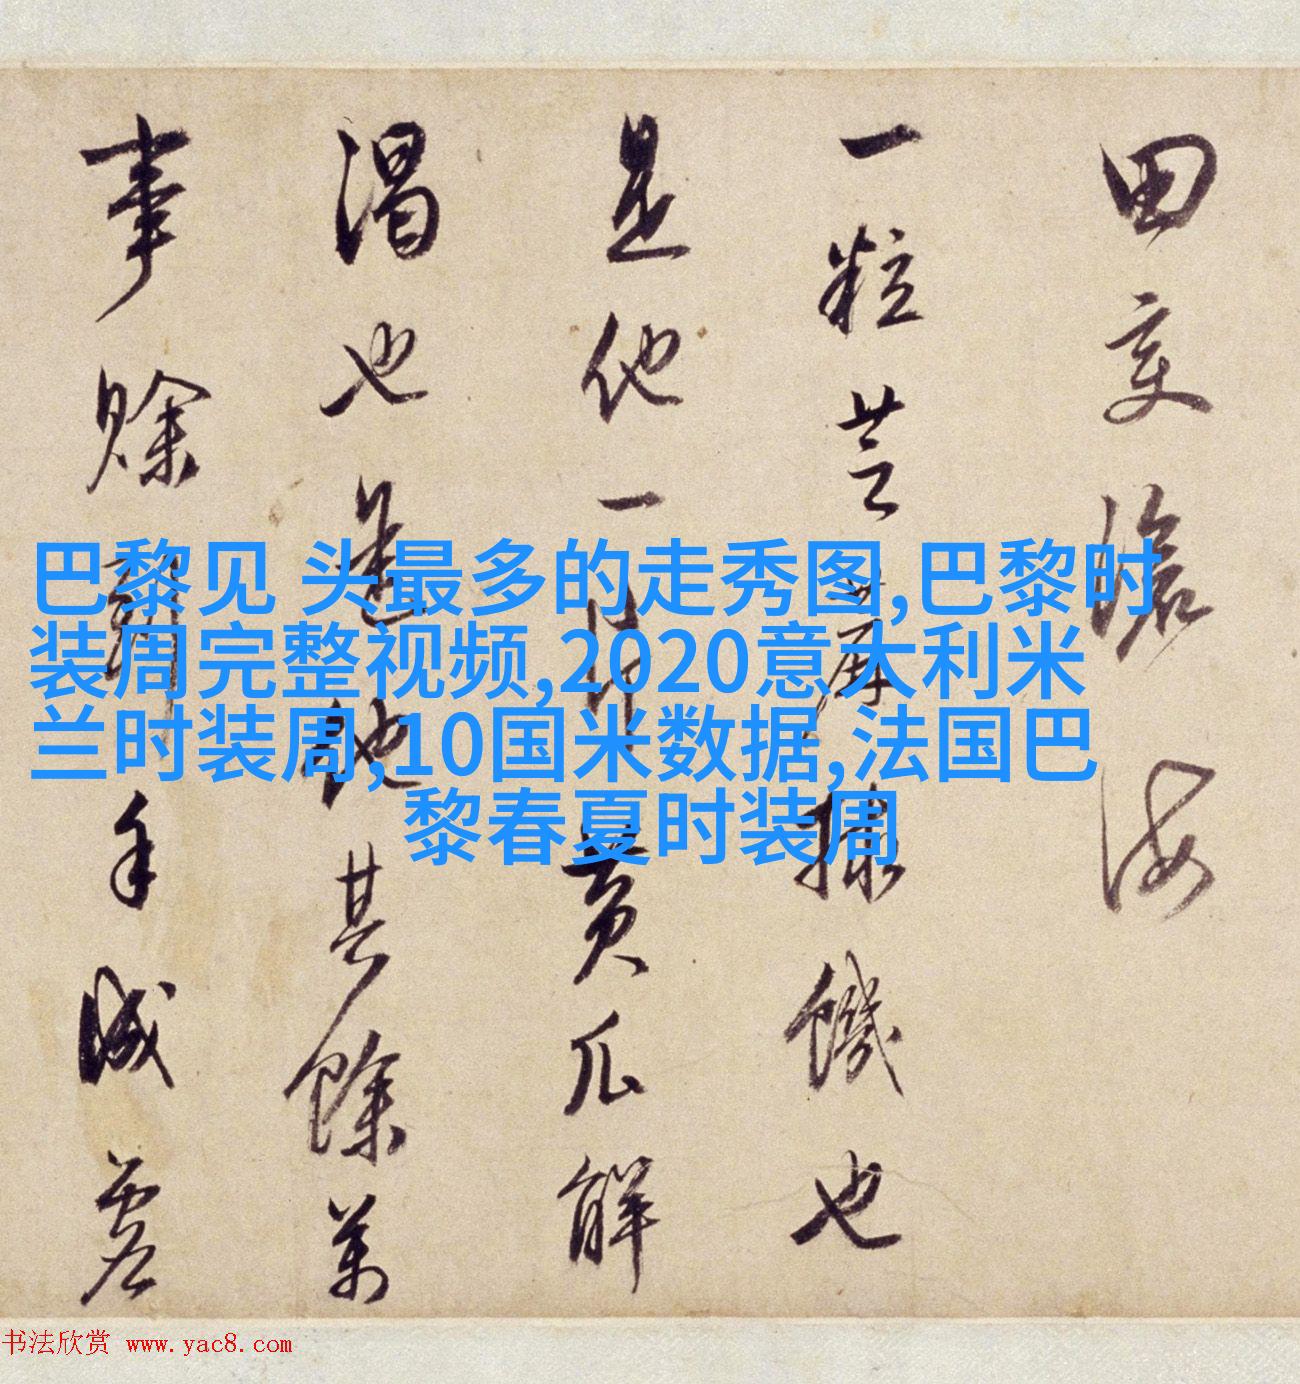 田变滄海
一粒芝 饑也
是他一片黄瓜解
渴也 其餘萬
事賒 手
巴黎见 头最多的走秀图,巴黎时
装周完整视频,2020意大利米
兰时装周,10国米数据,法国巴
黎春夏时装周
书法欣赏 www.yac8.com